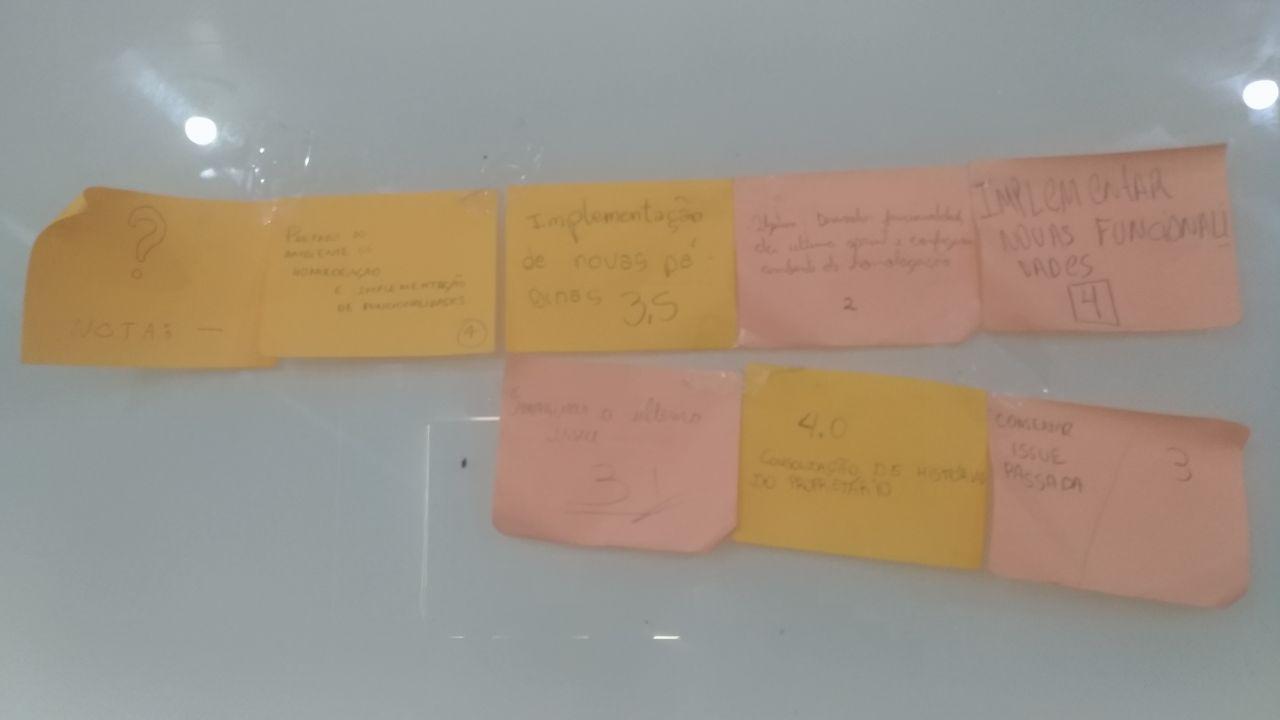 ?
NOTAS —
PREPARO DO
AMBIENTE DE
HOMOLOGAÇÃO
E IMPLEMENTAÇÃO
DE FUNCIONALIDADES
4
Implementação
de novas pá-
ginas 3,5
funcionalidade
ambiente de homologação
2
IMPLEMENTAR
NOVAS FUNCIONALI
DADES
4
o ultimo
3!
4.0
CONSOLIZAÇÃO DE HISTÓRIAS
DO PROPRIETÁRIO
CONSERTAR
ISSUE
PASSADA
3